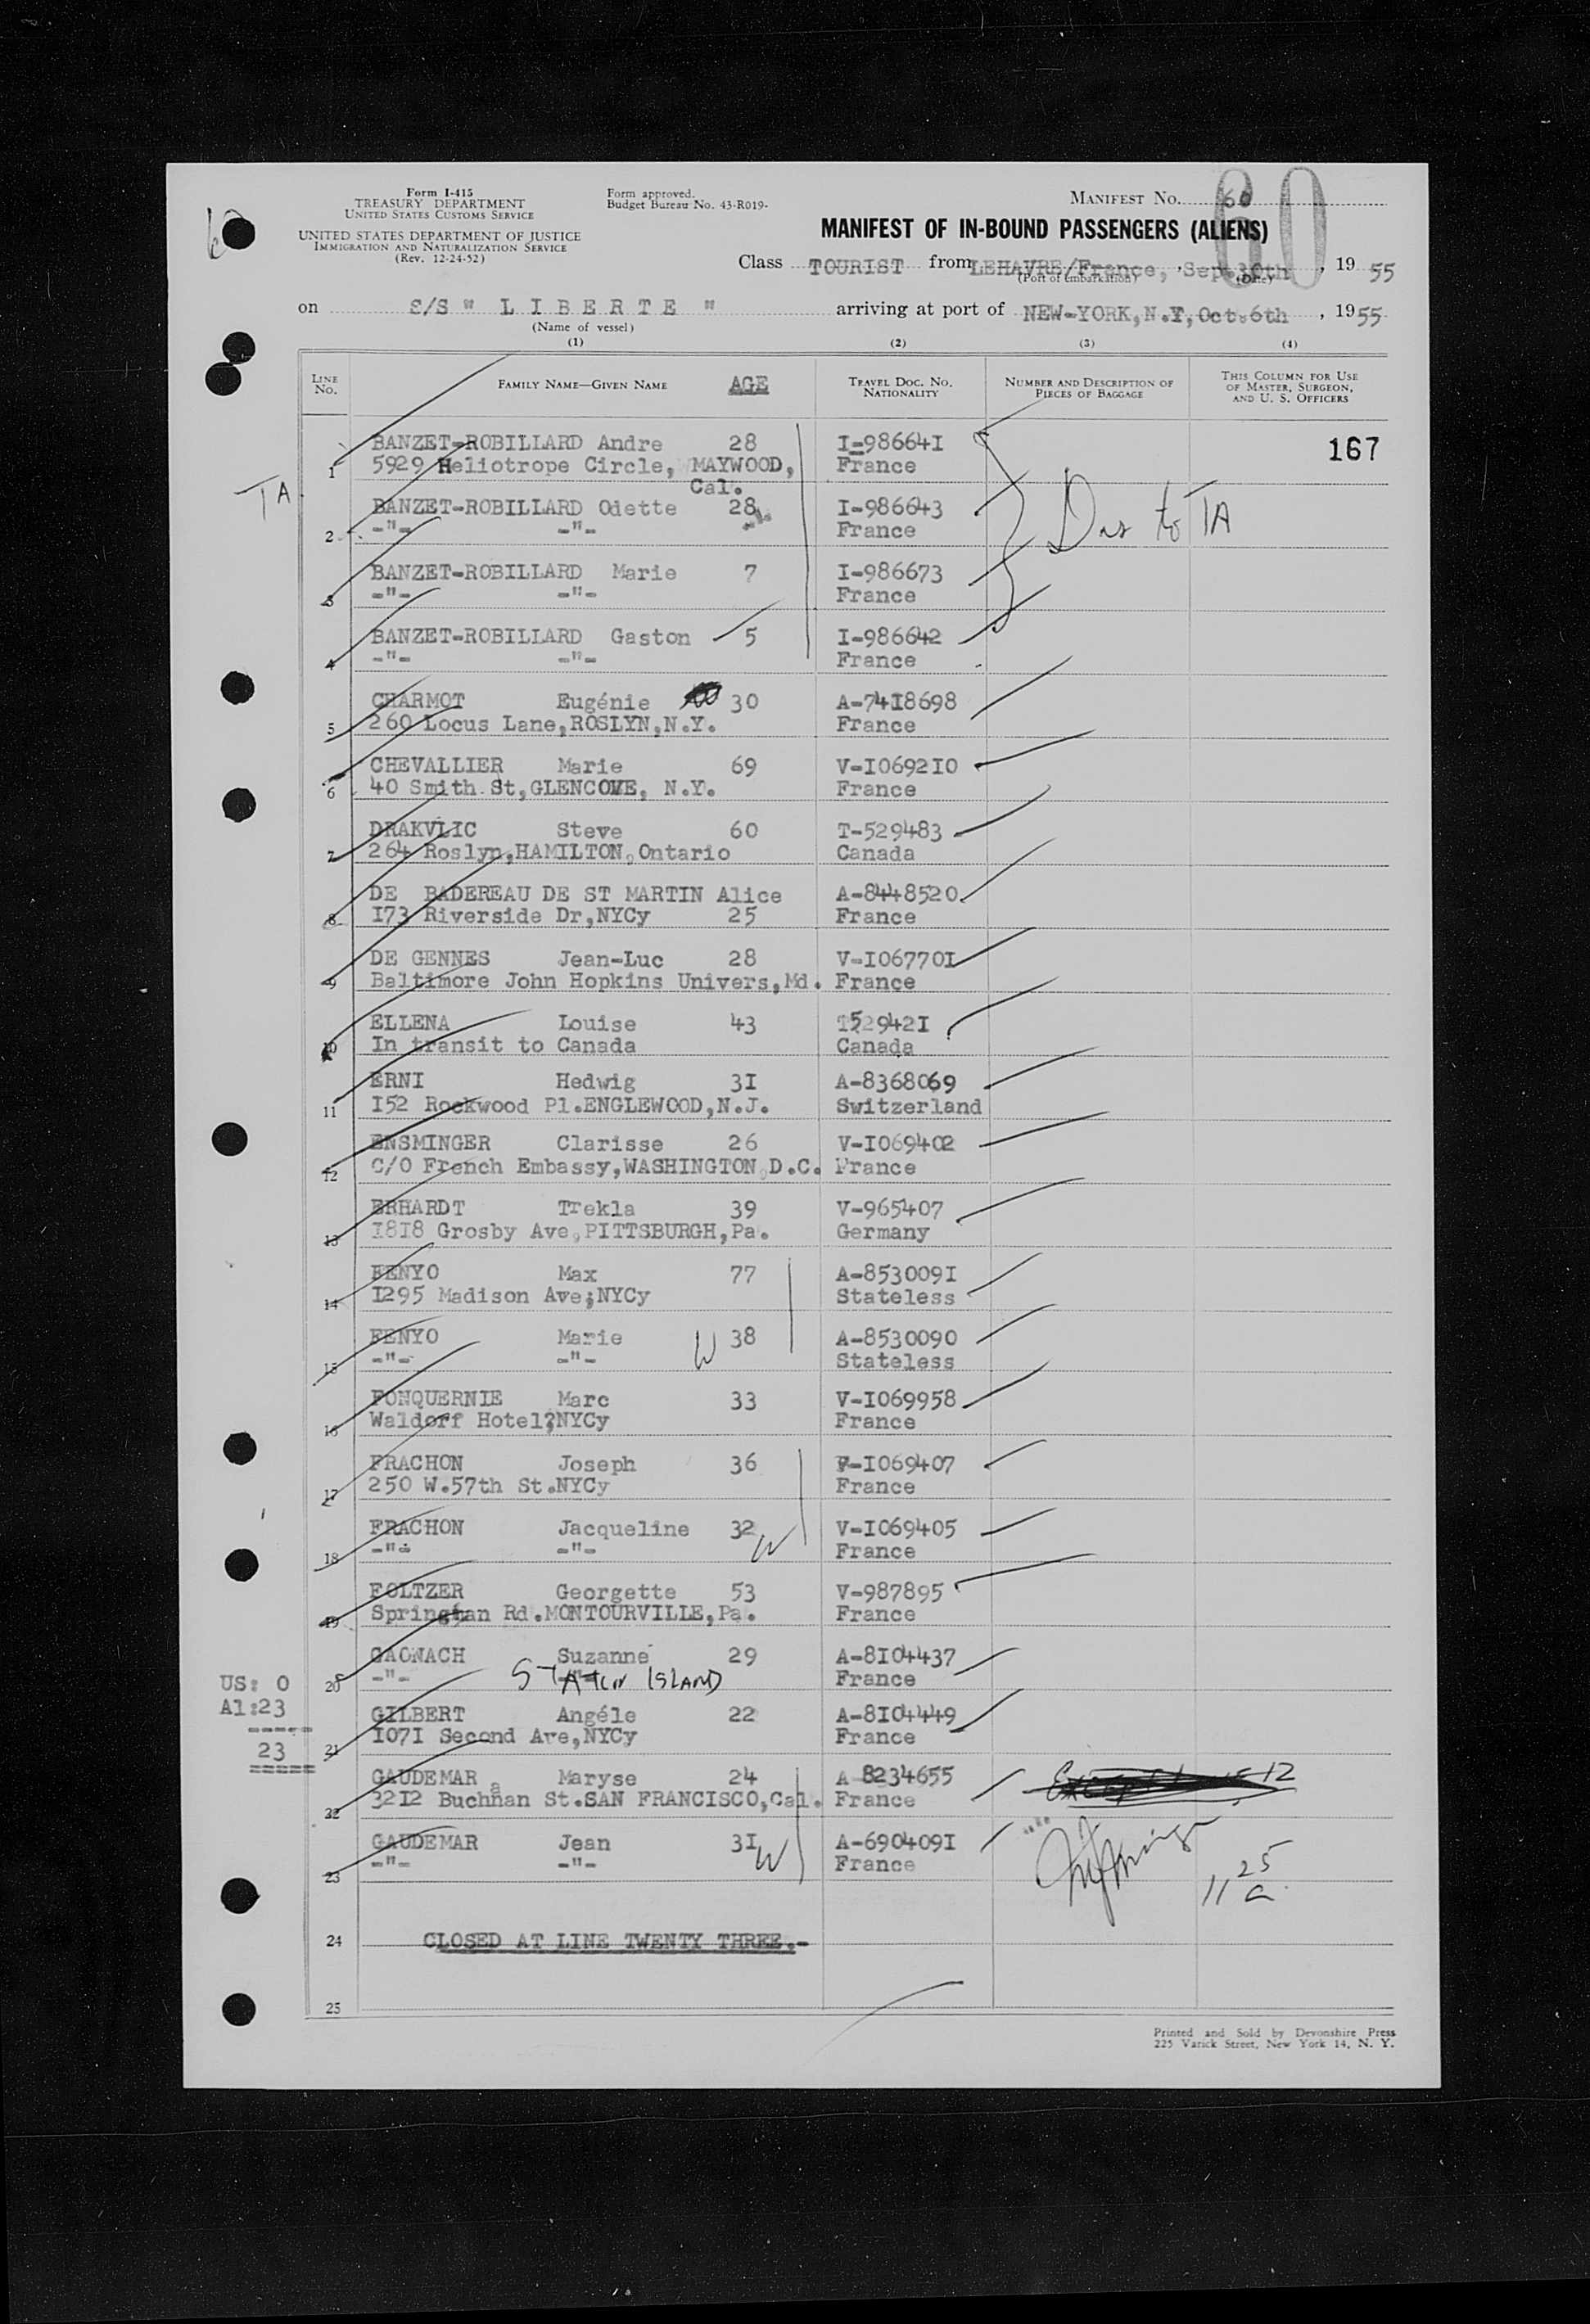 Form I-415
TREASURY DEPARTMENT
UNITED STATES CUSTOMS SERVICE
UNITED STATES DEPARTMENT OF JUSTICE
IMMIGRATION AND NATURALIZATION SERVICE
(Rev. 12-24-52)
Form approved.
Budget Bureau No. 43-R019-
MANIFEST NO. 60
60
MANIFEST OF IN-BOUND PASSENGERS (ALIENS)
Class TOURIST from LEHAVRE/France, Sept.30th, 1955
(Port of embarkation) (Date)
on S/S " L I B E R T E " arriving at port of NEW-YORK, N.Y, Oct.6th, 1955
(Name of vessel)
(1) (2) (3) (4)
LINE NO. FAMILY NAME—GIVEN NAME AGE TRAVEL DOC. NO. NATIONALITY NUMBER AND DESCRIPTION OF PIECES OF BAGGAGE THIS COLUMN FOR USE OF MASTER, SURGEON, AND U. S. OFFICERS
167
BANZET-ROBILLARD Andre 28 I-986641
1 5929 Heliotrope Circle, MAYWOOD, Cal. France
TA
BANZET-ROBILLARD Odette 28 I-986643
2 -"- -"- France
to TA
BANZET-ROBILLARD Marie 7 I-986673
3 -"- -"- France
BANZET-ROBILLARD Gaston 5 I-986642
4 -"- -"- France
CHARMOT Eugénie 30 A-74I8698
5 260 Locus Lane,ROSLYN,N.Y. France
CHEVALLIER Marie 69 V-I0692I0
6 40 Smith St,GLENCOVE, N.Y. France
DRAKVLIC Steve 60 T-529483
7 264 Roslyn,HAMILTON,Ontario Canada
DE BADEREAU DE ST MARTIN Alice A-8448520
8 I73 Riverside Dr,NYCy 25 France
DE GENNES Jean-Luc 28 V-I06770I
9 Baltimore John Hopkins Univers,Md. France
ELLENA Louise 43 T52942I
10 In transit to Canada Canada
ERNI Hedwig 3I A-8368069
11 I52 Rockwood Pl.ENGLEWOOD,N.J. Switzerland
ENSMINGER Clarisse 26 V-I069402
12 C/O French Embassy,WASHINGTON,D.C. France
ERHARDT Trekla 39 V-965407
13 I8I8 Grosby Ave,PITTSBURGH,Pa. Germany
FENYO Max 77 A-853009I
14 I295 Madison Ave;NYCy Stateless
FENYO Marie W 38 A-8530090
15 -"- -"- Stateless
FONQUERNIE Marc 33 V-I069958
16 Waldorf Hotel?NYCy France
FRACHON Joseph 36 V-I069407
17 250 W.57th St.NYCy France
FRACHON Jacqueline 32 W V-I069405
18 -"- -"- France
FOLTZER Georgette 53 V-987895
19 Springhan Rd.MONTOURVILLE,Pa. France
GAONACH Suzanne 29 A-8I04437
20 -"- STATEN ISLAND France
US: 0
Al:23
-----
23
=====
GILBERT Angéle 22 A-8I04449
21 I07I Second Ave,NYCy France
GAUDEMAR Maryse 24 A-8234655
22 32I2 Buchnan St.SAN FRANCISCO,Cal. France
12
GAUDEMAR Jean 3I W A-690409I
23 -"- -"- France
11 25 a
24 CLOSED AT LINE TWENTY THREE.-
25
Printed and Sold by Devonshire Press
225 Varick Street, New York 14, N. Y.